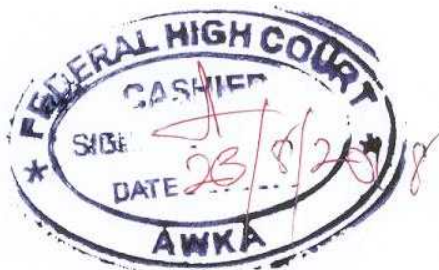 FEDERAL HIGH COURT
CASHIER
SIGN
DATE 23/8/2018
AWKA